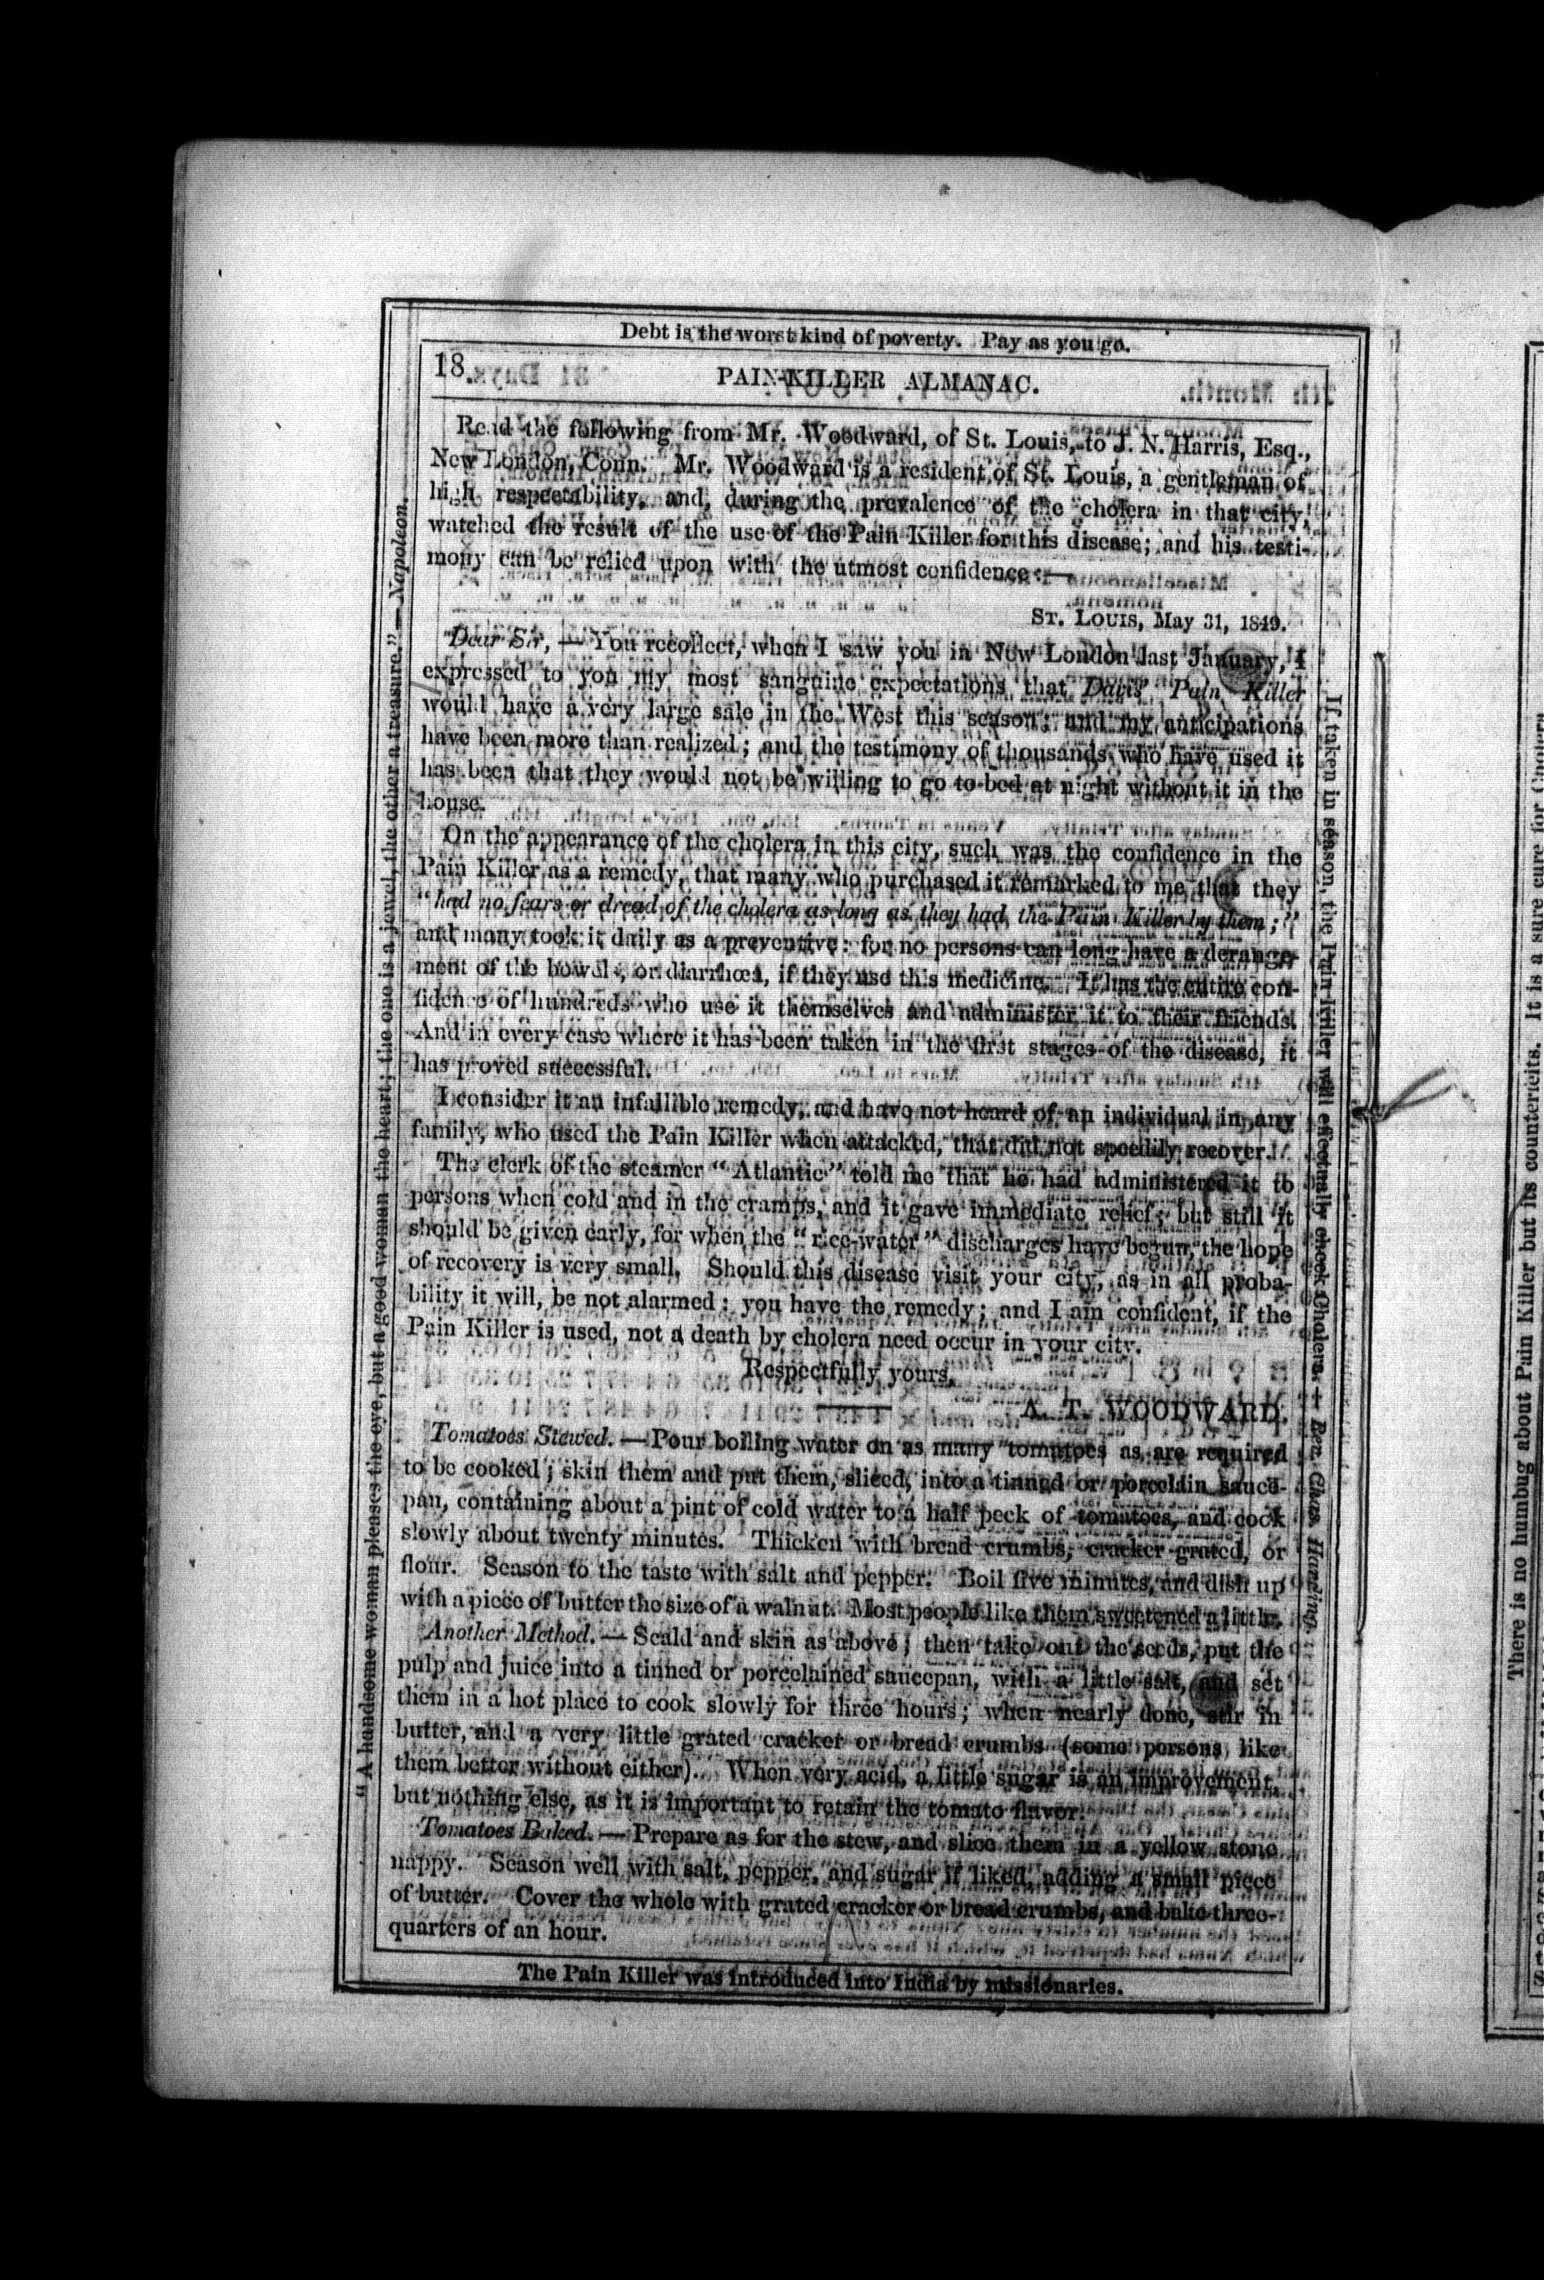 Debt is the worst kind of poverty. Pay as you go.
18
PAIN-KILLER ALMANAC.
Read the following from Mr. Woodward, of St. Louis, to J. N. Harris, Esq.,
New London, Conn. Mr. Woodward is a resident of St. Louis, a gentleman of
high respectability, and, during the prevalence of the cholera in that city,
watched the result of the use of the Pain Killer for this disease; and his testi-
mony can be relied upon with the utmost confidence:—
ST. LOUIS, May 31, 1849.
Dear Sir, — You recollect, when I saw you in New London last January, I
expressed to you my most sanguine expectations that Davis' Pain Killer
would have a very large sale in the West this season; and my anticipations
have been more than realized; and the testimony of thousands who have used it
has been that they would not be willing to go to bed at night without it in the
house.
On the appearance of the cholera in this city, such was the confidence in the
Pain Killer as a remedy, that many who purchased it remarked to me that they
"had no fears or dread of the cholera as long as they had the Pain Killer by them;"
and many took it daily as a preventive: for no persons can long have a derange-
ment of the bowels, or diarrhœa, if they use this medicine. It has the entire con-
fidence of hundreds who use it themselves and administer it to their friends.
And in every case where it has been taken in the first stages of the disease, it
has proved successful.
I consider it an infallible remedy, and have not heard of an individual in any
family, who used the Pain Killer when attacked, that did not speedily recover.
The clerk of the steamer "Atlantic" told me that he had administered it to
persons when cold and in the cramps, and it gave immediate relief; but still it
should be given early, for when the "rice-water" discharges have begun, the hope
of recovery is very small. Should this disease visit your city, as in all proba-
bility it will, be not alarmed: you have the remedy; and I am confident, if the
Pain Killer is used, not a death by cholera need occur in your city.
Respectfully yours,
A. T. WOODWARD.
Tomatoes Stewed. — Pour boiling water on as many tomatoes as are required
to be cooked; skin them and put them, sliced, into a tinned or porcelain sauce-
pan, containing about a pint of cold water to a half peck of tomatoes, and cook
slowly about twenty minutes. Thicken with bread crumbs, cracker grated, or
flour. Season to the taste with salt and pepper. Boil five minutes, and dish up
with a piece of butter the size of a walnut. Most people like them sweetened a little.
Another Method. — Scald and skin as above; then take out the seeds, put the
pulp and juice into a tinned or porcelained saucepan, with a little salt, and set
them in a hot place to cook slowly for three hours; when nearly done, stir in
butter, and a very little grated cracker or bread crumbs (some persons like
them better without either). When very acid, a little sugar is an improvement,
but nothing else, as it is important to retain the tomato flavor.
Tomatoes Baked. — Prepare as for the stew, and slice them in a yellow stone
nappy. Season well with salt, pepper, and sugar if liked, adding a small piece
of butter. Cover the whole with grated cracker or bread crumbs, and bake three-
quarters of an hour.
The Pain Killer was introduced into India by missionaries.
"A handsome woman pleases the eye, but a good woman the heart; the one is a jewel, the other a treasure." — Napoleon.
If taken in season, the Pain Killer will effectually check Cholera. — Rev. Chas. Harding.
There is no humbug about Pain Killer but its counterfeits. It is a sure cure for Cholera